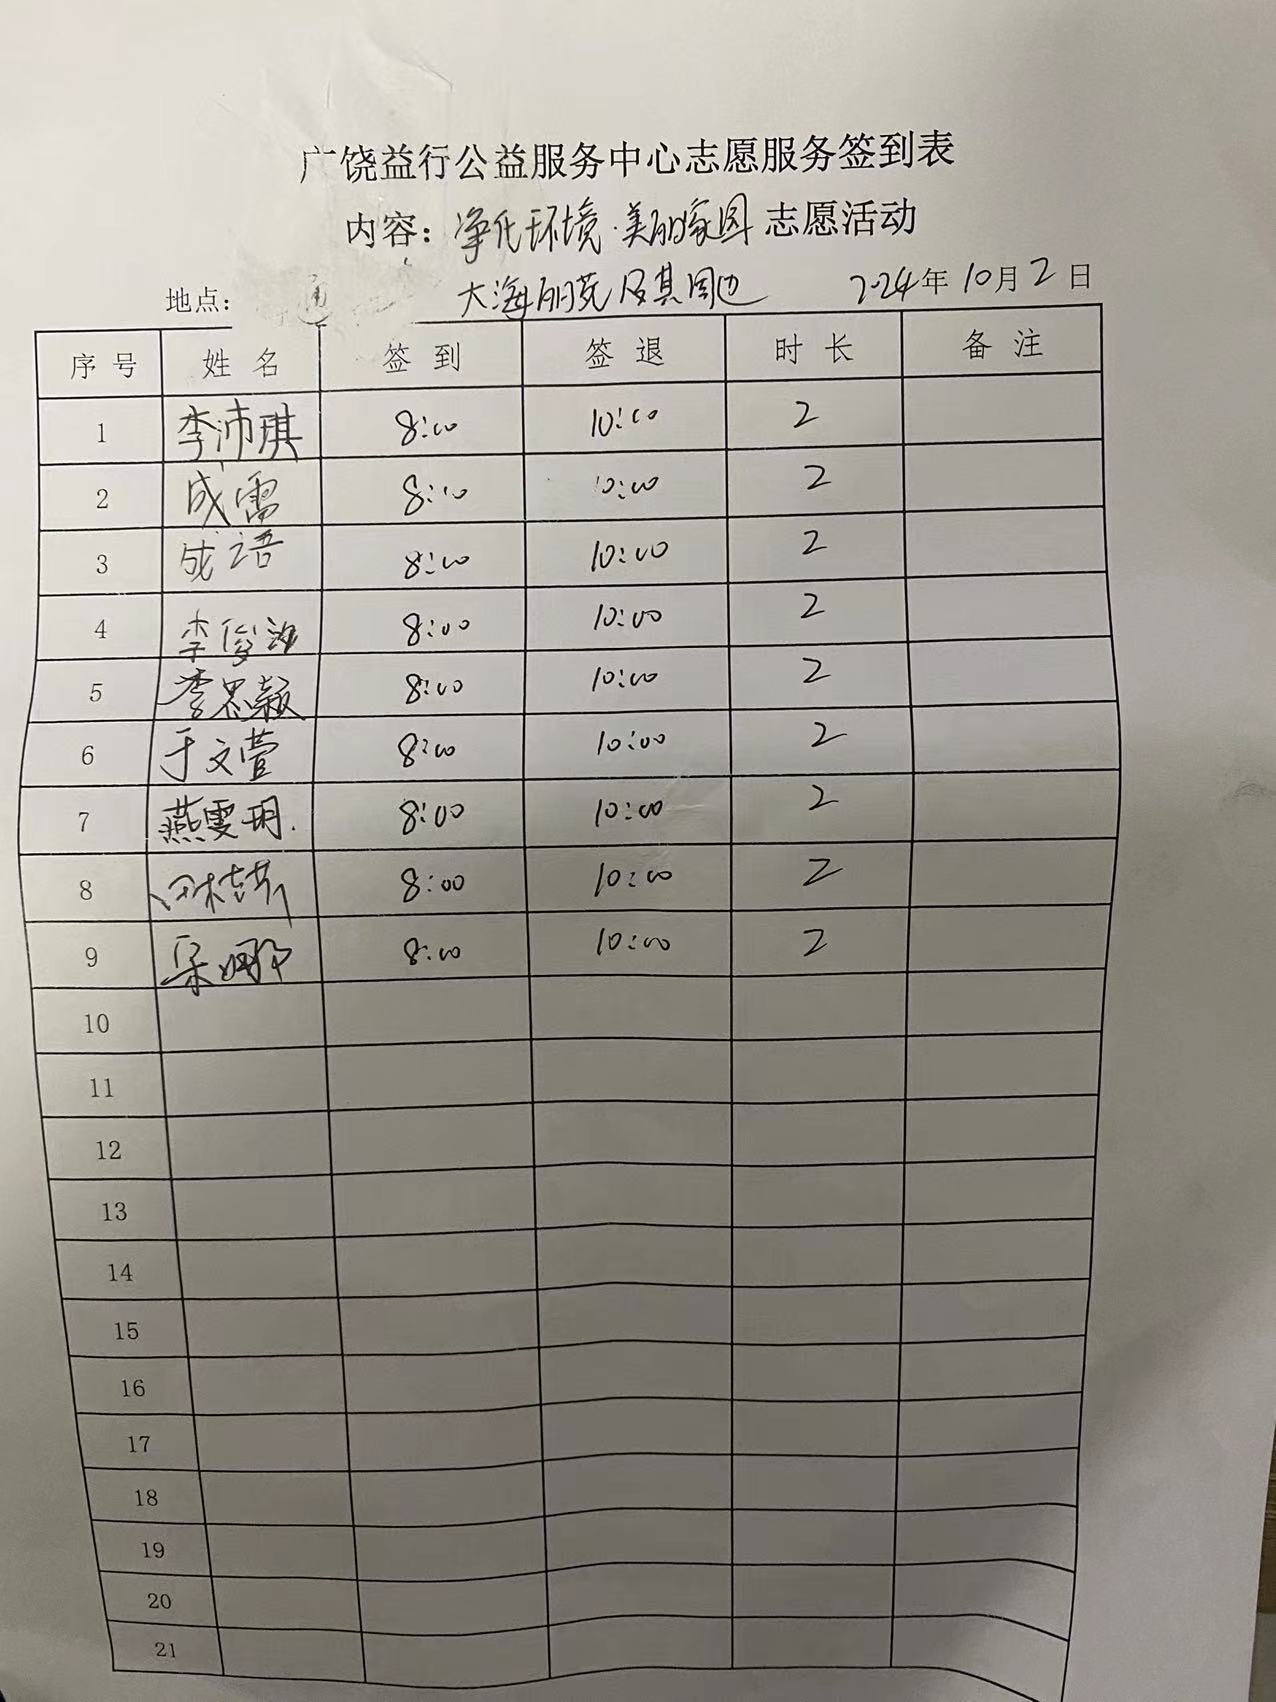 广饶益行公益服务中心志愿服务签到表
内容：净化环境·美丽家园 志愿活动
地点： 大海丽苑及其周边 2024年10月2日
序号 姓名 签到 签退 时长 备注
1 李沛琪 8:00 10:00 2
2 成雷 8:00 10:00 2
3 成语 8:00 10:00 2
4 李俊 8:00 10:00 2
5 李思颖 8:00 10:00 2
6 于文萱 8:00 10:00 2
7 燕雯玥 8:00 10:00 2
8 8:00 10:00 2
9 梁娜 8:00 10:00 2
10
11
12
13
14
15
16
17
18
19
20
21